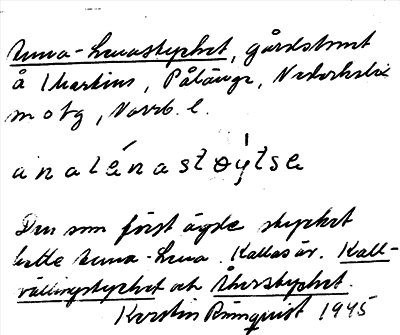 Anna-Lenastycket, gårdstomt
å 1 Martins, Pålänge, Nederkalix
motg, Norrb. l.
analénastøytse
Den som först ägde stycket
hette Anna-Lena. Kallas äv. Kall-
vällingstycket och Åkerstycket.
Kerstin Rönnquist 1945